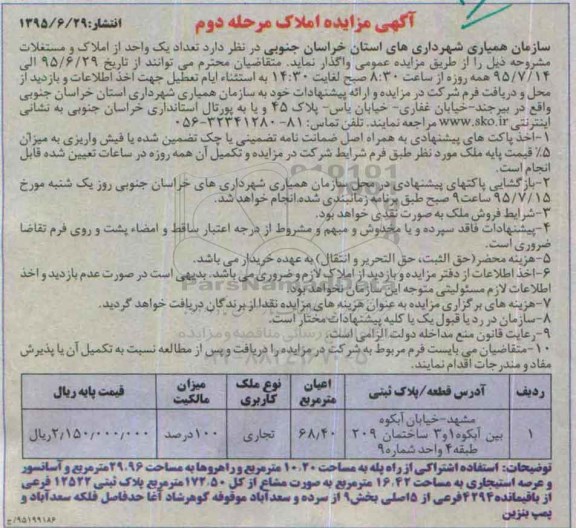 آگهی مزایده املاک مرحله دوم
انتشار:۱۳۹۵/۶/۲۹
سازمان همیاری شهرداری های استان خراسان جنوبی در نظر دارد تعداد یک واحد از املاک و مستغلات
مشروحه ذیل را از طریق مزایده عمومی واگذار نماید. متقاضیان محترم می توانند از تاریخ ۹۵/۶/۲۹ الی
۹۵/۷/۱۴ همه روزه از ساعت ۸:۳۰ صبح لغایت ۱۴:۳۰ به استثناء ایام تعطیل جهت اخذ اطلاعات و بازدید از
محل و دریافت فرم شرکت در مزایده و ارائه پیشنهادات خود به سازمان همیاری شهرداری استان خراسان جنوبی
واقع در بیرجند-خیابان غفاری- خیابان یاس- پلاک ۴۵ و یا به پورتال استانداری خراسان جنوبی به نشانی
اینترنتی www.sko.ir مراجعه نمایند. تلفن تماس: ۸۱-۳۲۳۴۱۲۸۰-۰۵۶
۱-اخذ پاکت های پیشنهادی به همراه اصل ضمانت نامه تضمینی یا چک تضمین شده یا فیش واریزی به میزان
۵٪ قیمت پایه ملک مورد نظر طبق فرم شرایط شرکت در مزایده و تکمیل آن همه روزه در ساعات تعیین شده قابل
انجام است.
۲-بازگشایی پاکتهای پیشنهادی در محل سازمان همیاری شهرداری های خراسان جنوبی روز یک شنبه مورخ
۹۵/۷/۱۵ ساعت ۹ صبح طبق برنامه زمانبندی شده انجام خواهد شد.
۳-شرایط فروش ملک به صورت نقدی خواهد بود.
۴-پیشنهادات فاقد سپرده و یا مخدوش و مبهم و مشروط از درجه اعتبار ساقط و امضاء پشت و روی فرم تقاضا
ضروری است.
۵-هزینه محضر(حق الثبت، حق التحریر و انتقال) به عهده خریدار می باشد.
۶-اخذ اطلاعات از دفتر مزایده و بازدید از املاک لازم و ضروری می باشد. بدیهی است در صورت عدم بازدید و اخذ
اطلاعات لازم مسئولیتی متوجه این سازمان نخواهد بود.
۷-هزینه های برگزاری مزایده به عنوان هزینه های مزایده نقدا از برندگان دریافت خواهد گردید.
۸-سازمان در رد یا قبول یک یا کلیه پیشنهادات مختار است.
۹-رعایت قانون منع مداخله دولت الزامی است.
۱۰-متقاضیان می بایست فرم مربوط به شرکت در مزایده را دریافت و پس از مطالعه نسبت به تکمیل آن یا پذیرش
مفاد و مندرجات اقدام نمایند.
ردیف آدرس قطعه/پلاک ثبتی اعیان مترمربع نوع ملک کاربری میزان مالکیت قیمت پایه ریال
۱ مشهد-خیابان آبکوه بین آبکوه۱و۳ ساختمان ۲۰۹ طبقه۴ واحد شماره۹ ۶۸/۴۰ تجاری ۱۰۰درصد ۲/۱۵۰/۰۰۰/۰۰۰ریال
توضیحات: استفاده اشتراکی از راه پله به مساحت ۱۰.۲۰ مترمربع و راهروها به مساحت ۲۹.۹۶مترمربع و آسانسور
و عرصه استیجاری به مساحت ۱۶.۴۲ مترمربع به صورت مشاع از کل ۱۷۲.۵۰مترمربع پلاک ثبتی ۱۲۵۲۲ فرعی
از باقیمانده۴۲۹۴فرعی از ۵اصلی بخش۹ از سرده و سعدآباد موقوفه گوهرشاد آغا حدفاصل فلکه سعدآباد و
پمپ بنزین
۹۵۱۹۹۱۸۶/ح